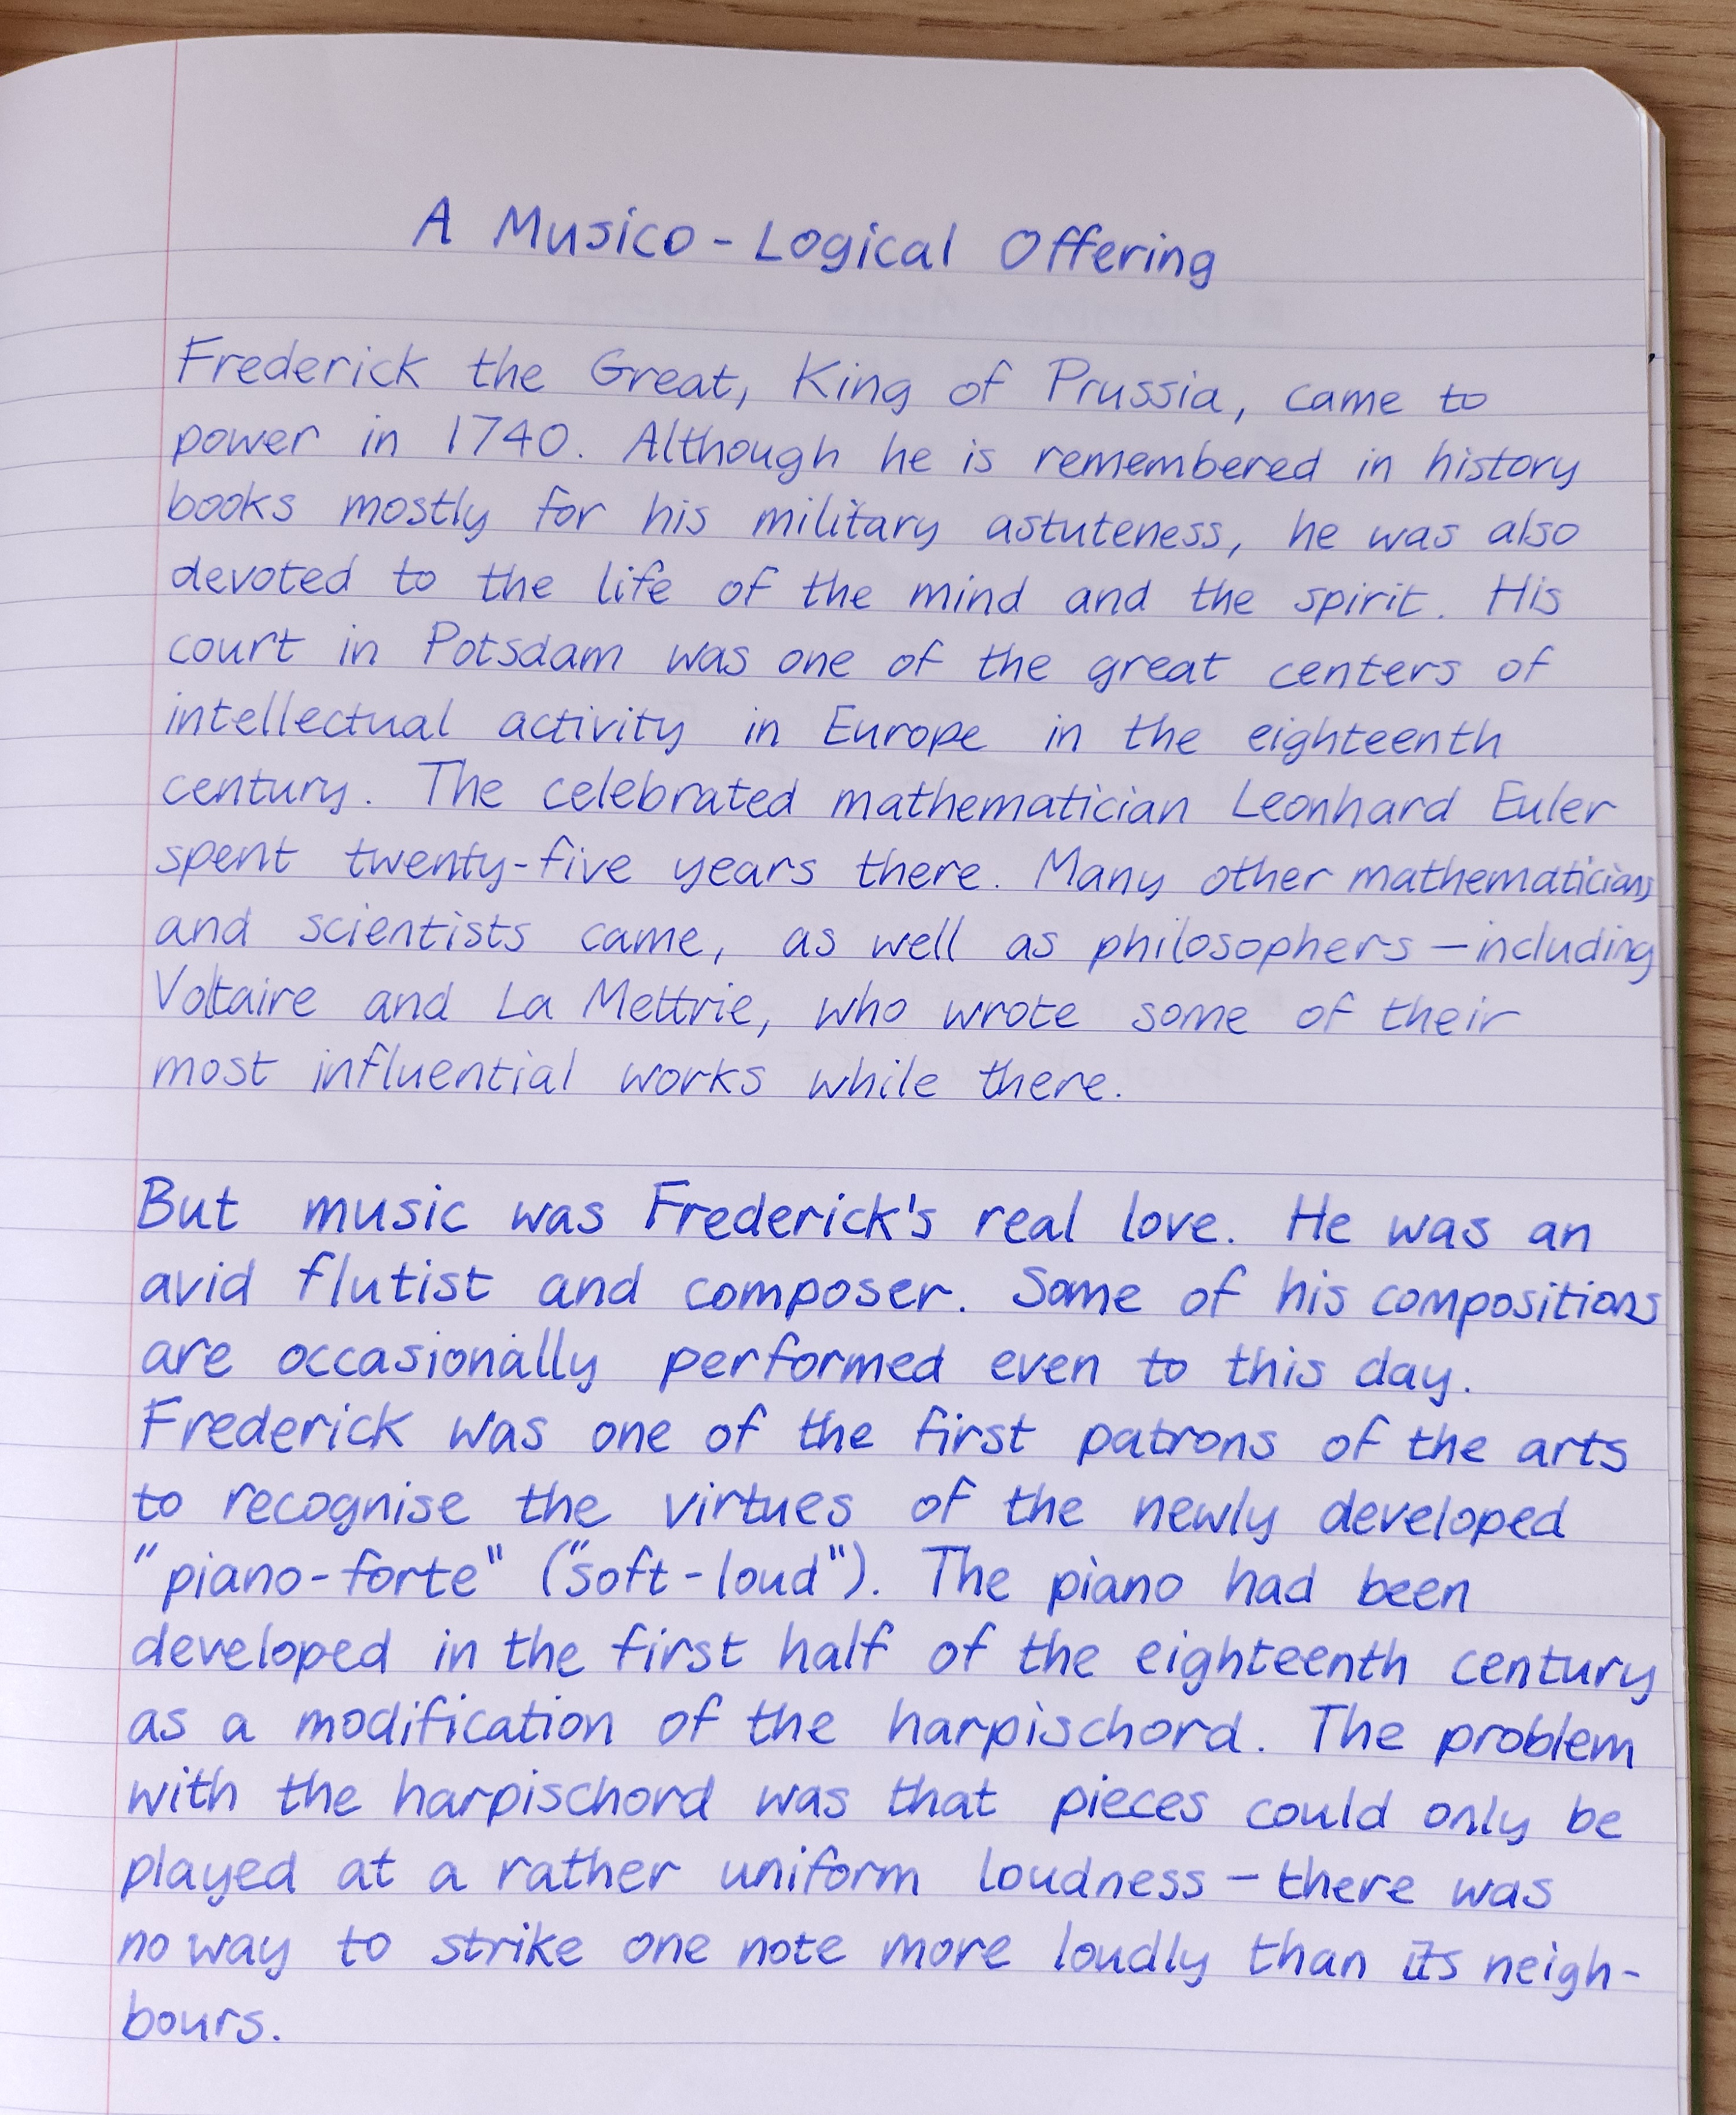 A Musico-Logical Offering
Frederick the Great, King of Prussia, came to
power in 1740. Although he is remembered in history
books mostly for his military astuteness, he was also
devoted to the life of the mind and the spirit. His
court in Potsdam was one of the great centers of
intellectual activity in Europe in the eighteenth
century. The celebrated mathematician Leonhard Euler
spent twenty-five years there. Many other mathematicians
and scientists came, as well as philosophers — including
Voltaire and La Mettrie, who wrote some of their
most influential works while there.
But music was Frederick's real love. He was an
avid flutist and composer. Some of his compositions
are occasionally performed even to this day.
Frederick was one of the first patrons of the arts
to recognise the virtues of the newly developed
"piano-forte" ("soft-loud"). The piano had been
developed in the first half of the eighteenth century
as a modification of the harpischord. The problem
with the harpischord was that pieces could only be
played at a rather uniform loudness — there was
no way to strike one note more loudly than its neigh-
bours.